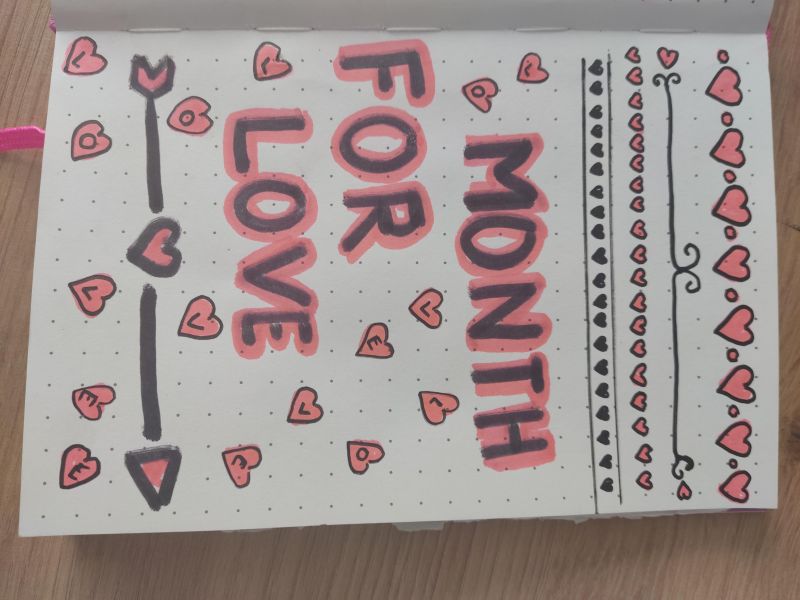 MONTH
FOR
LOVE